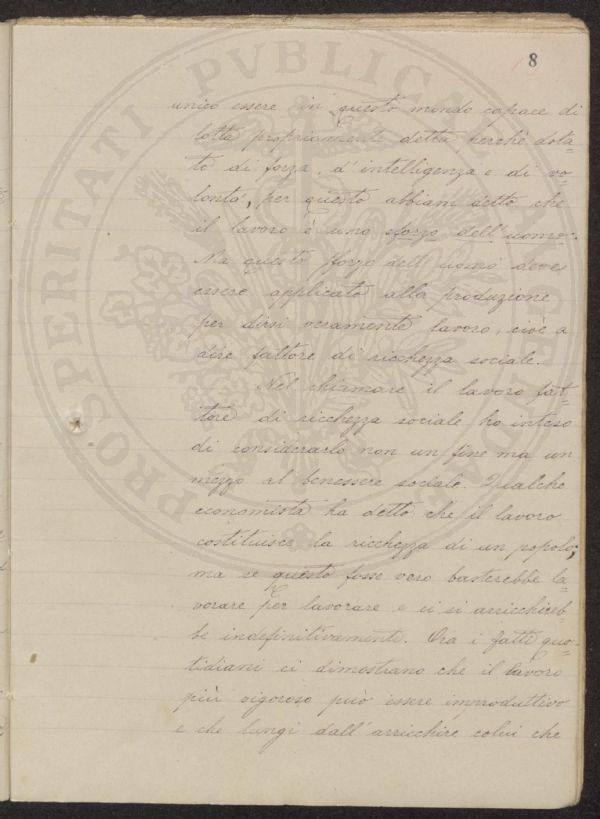 8
unico essere in questo mondo capace di
lotta propriamente detta perchè dota-
to di forza, d'intelligenza e di vo-
lontà, per questo abbiam detto che
il lavoro è uno sforzo dell'uomo.
Ma questo sforzo dell'uomo deve
essere applicato alla produzione
per dirsi veramente lavoro, cioè a
dire fattore di ricchezza sociale.
Nel chiamare il lavoro fat-
tore di ricchezza sociale ho inteso
di considerarlo non un fine ma un
mezzo al benessere sociale. Qualche
economista ha detto che il lavoro
costituisce la ricchezza di un popolo;
ma se questo fosse vero basterebbe la-
vorare per lavorare e ci si arricchireb-
be indefinitivamente. Ora i fatti quo-
tidiani ci dimostrano che il lavoro
più vigoroso può essere improduttivo
e che lungi dall'arricchire colui che
PROSPERITATI PVBLICAE